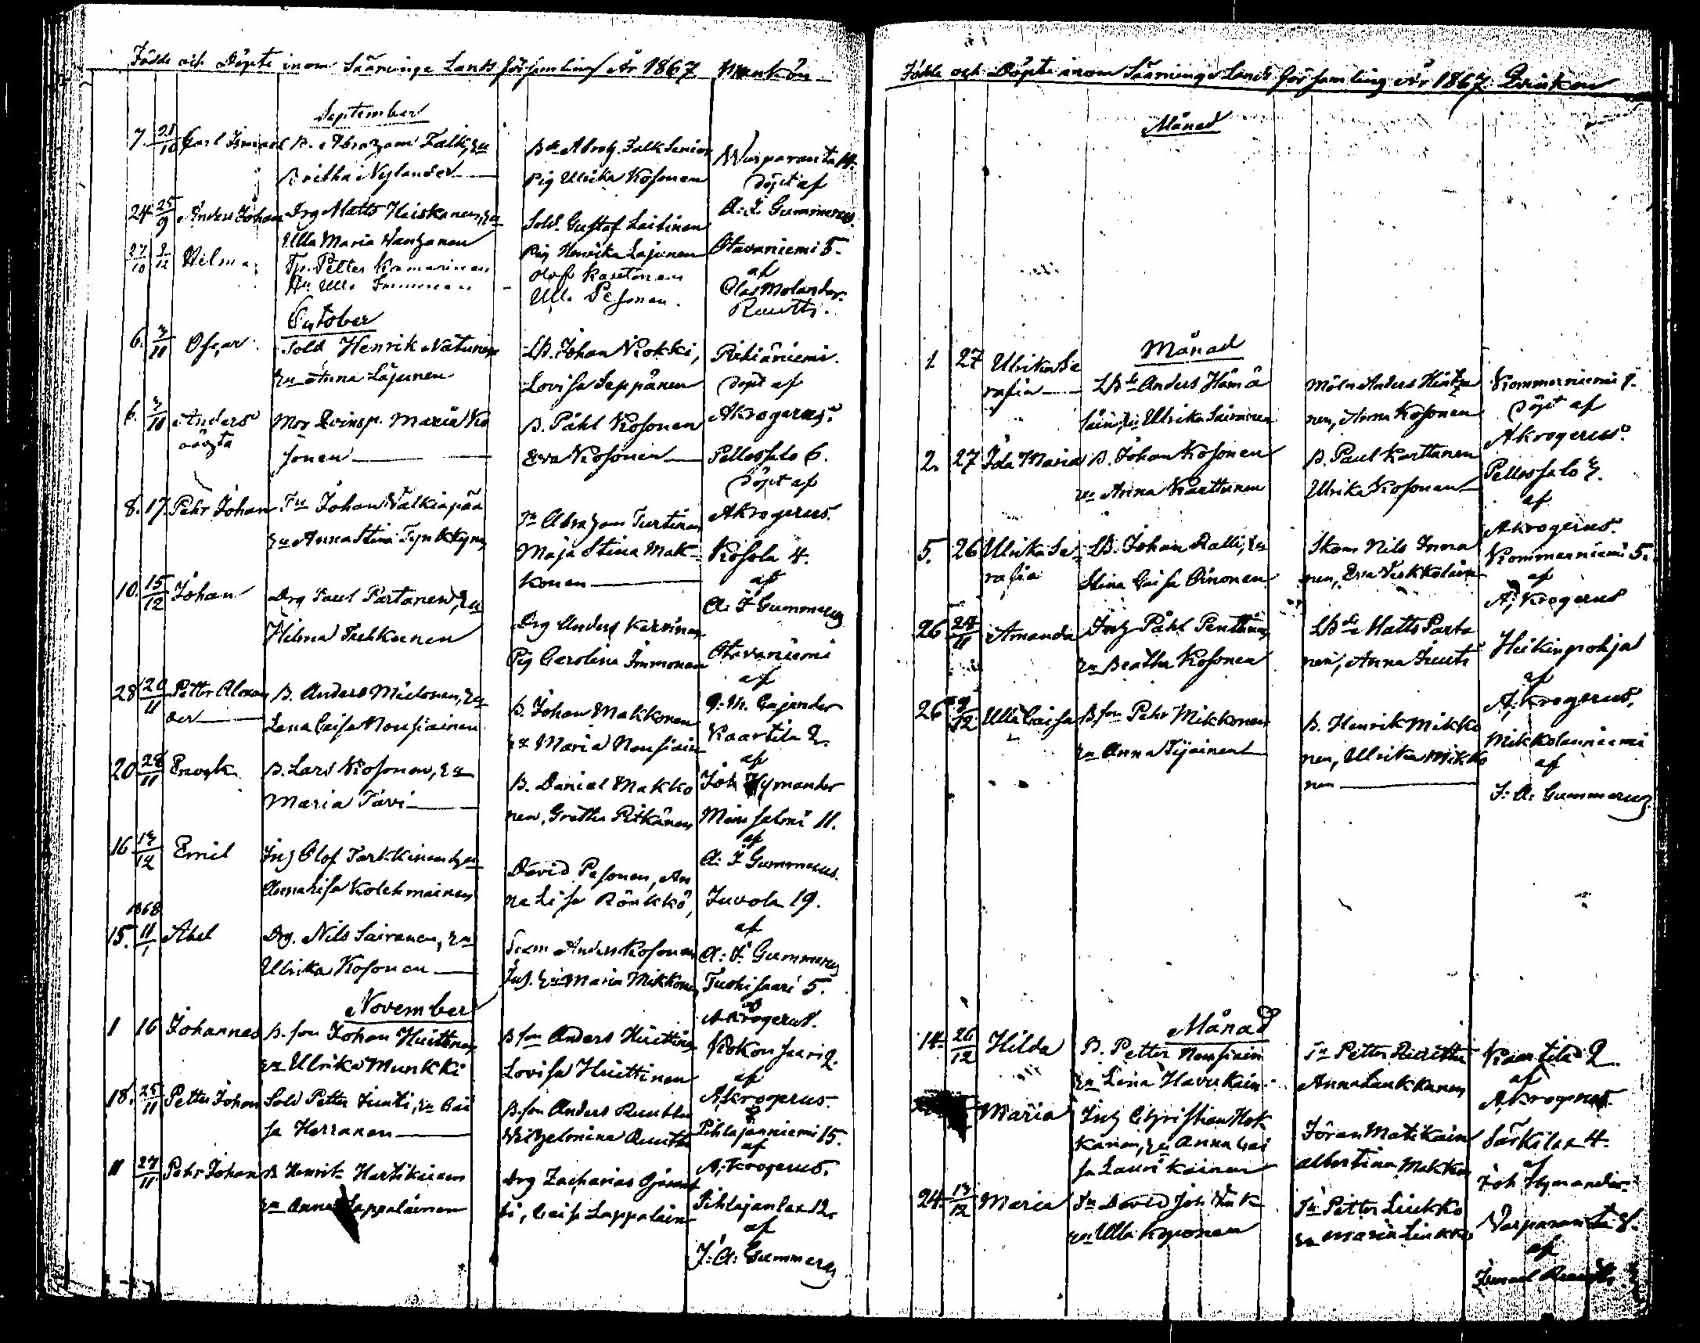 Födde och Döpte inom Sääminge Lands församling År 1867 Mankön
September
7. Carl Ismael B. Abraham Falk, &u
Britha Nylander
Bde Abrah. Falk Senior
Pig Ulrika Kosonen
Warparanta 14.
döpt af
A: F Gummerus
24 25/9 Anders Johan Drg Matts Heiskanen, &u
Ulla Maria
Sold. Gustaf Laitinen
Pig Henrika Lajunen
Otavaniemi 5.
af
Olas Molander.
27/10 2/12 Helma
Petter Kamarinen
Hu Ulla Immonen
Olof
Ulla Pesonen.
October
6. Oscar Sold Henrik Nätunen
&u Anna Lajunen
LB. Johan Kokki,
Lovisa Seppänen
Pihlajaniemi.
döpt af
AKrogerus.
6. Anders
oäkta
Mor qvinsp. Maria Ko
sonen
B. Påhl Kosonen
Eva Kosonen
Pellossalo 6.
döpt af
AKrogerus.
8. 17. Pehr Johan Johan Walkiapää
&u Anna Stina Tynkkynen
Abraham Turtinen
Maja Stina Mak
konen
Kosola 4.
af
A: F Gummerus
10. 15/12 Johan Drg Paul Partanen, &u
Helena Tuhkunen
Drg Anders Karvinen
Pig Carolina Immonen
Otavaniemi
af
G. M. Cajander
28 20/11 Petter Alexan
der
B. Anders Mielonen, &u
Lena Caisa Nousiainen
B. Johan Makkonen
&u Maria Nousiain
Kaartila 2.
af
Joh Hymander
20 28/11 Enock B. Lars Kosonen, &u
Maria Tarvi
B. Daniel Makko
nen, Gretha Pitkänen
Miinsalmi 11.
af
A: F Gummerus.
16 Emil Inh Olof Tarkkinen &u
Annalisa Kolehmainen
David Pesonen, An
na Lisa Rönkkö,
Juvola 19.
af
A: F Gummerus
1868
15. 11/1 Abel Drg. Nils Sairanen, &u
Ulrika Kosonen
Anders Kosonen
Inh. &u Maria Mikkonen
Tuohisaari 5.
AKrogerus.
November
1 16 Johannes B. son Johan Huittinen
&u Ulrika Munkki
B son Anders Huittinen
Lovisa Huittinen
Kokonsaari 2.
af
AKrogerus.
18. 25/11 Petter Johan Sold Petter Juuti, &u Cai
sa Herranen
B. son Anders Ruuttu
Wilhelmina Ruuth
Pihlajaniemi 15.
af
A. Krogerus.
11 27/11 Pehr Johan B Henrik Hartikainen
&u Anna Lappalainen
Drg Zacharias
Caisa Lappalain
Pihlajanlax 12.
af
J: A: Gummerus
Födde och Döpte inom Sääminge Lands församling år 1867. Qvinkön
Månad
Månad
1. 27 Ulrika Se
rafia
LBde Anders Hämä
läin, &u Ulrika Sairanen
Möln Anders Hintsa
nen, Anna Kosonen
Kommerniemi 7.
döpt af
AKrogerus.
2. 27 Ida Maria B. Johan Kosonen
&u Anna Karttunen
B. Paul Karttunen
Ulrika Kosonen
Pellossalo 7.
af
AKrogerus.
5. 26 Ulrika Se
rafia
LB. Johan Ralli, &u
Stina Caisa Oinonen
Skom Nils Immo
nen, Eva Werkkolain
Kommerniemi 5.
af
A. Krogerus
26 24/11 Amanda Inh Påhl Penttinen
&u Beatha Kosonen
LBde Matts Parta
nen, Anna Juuti
Heikinpohja
af
A. Krogerus.
26 9/12 Ulla Caisa B. son Pehr Mikkonen
&u Anna Tijainen
B. Henrik Mikko
nen, Ulrika Mikko
nen
Mikkolanniemi
af
J: A: Gummerus
Månad
14. 26/12 Hilda B. Petter Nousiain
&u Lena Haverkain
Petter Reiettu
Anna Laukkanen
Kaartila 2
af
A. Krogerus.
Maria Inh Christian Hok
kanen, &u Anna Cai
sa Laurikainen
Göran Matikain
Albertina Makko
Särkilax 4.
af
Joh Hymander.
24. 13/12 Maria David Joh
&u Ulla Koponen
Petter Liukko
&u Maria Liukko
Warparanta 8.
af
Ismael